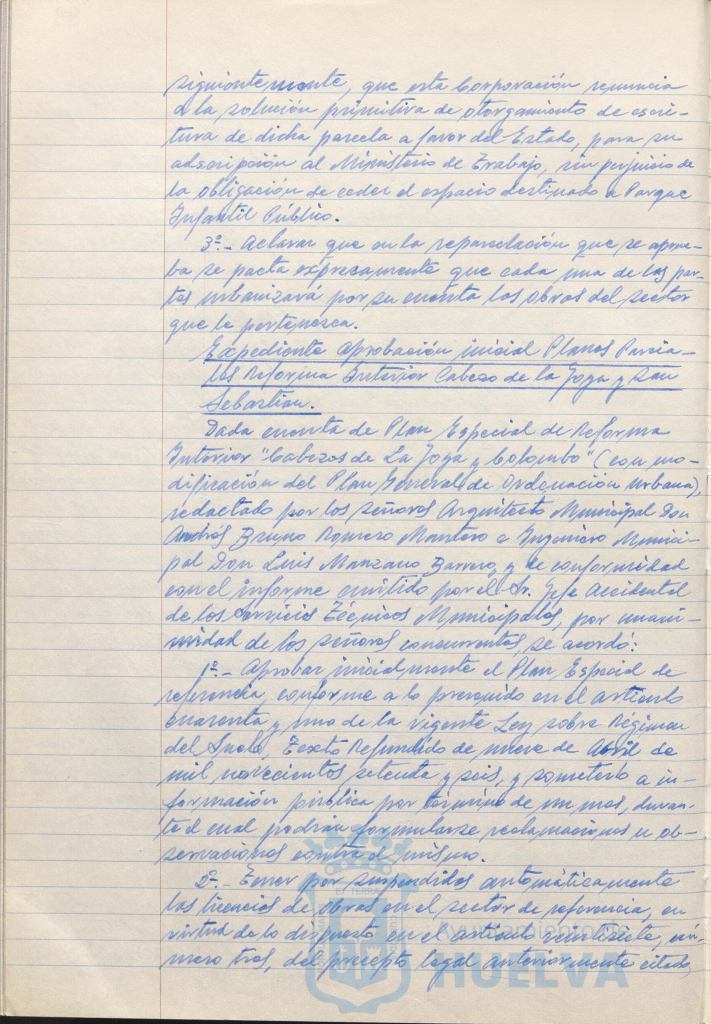 siguientemente, que esta Corporación renuncia
a la solución primitiva de otorgamiento de escri-
tura de dicha parcela a favor del Estado, para su
adscripción al Ministerio de Trabajo, sin perjuicio de
la obligación de ceder el espacio destinado a Parque
Infantil Público.
3º.- Aclarar que en la reparcelación que se aprue-
ba se pacta expresamente que cada una de las par-
tes urbanizará por su cuenta las obras del sector
que le pertenezca.
Expediente aprobación inicial Planes Parcia-
les Reforma Interior Cabezo de la Joya y San
Sebastian.
Dada cuenta de Plan Especial de Reforma
Interior "Cabezos de La Joya y Colombo" (con mo-
dificación del Plan General de Ordenación Urbana),
redactado por los señores Arquitecto Municipal Don
Andrés Bruno Romero Mantero e Ingeniero Munici-
pal Don Luis Manzano Barrero, y de conformidad
con el informe emitido por el Sr. Jefe Accidental
de los Servicios Técnicos Municipales, por unani-
midad de los señores concurrentes, se acordó:
1º.- Aprobar inicialmente el Plan Especial de
referencia, conforme a lo prevenido en el artículo
cuarenta y uno de la vigente Ley sobre Régimen
del Suelo, Texto Refundido de nueve de Abril de
mil novecientos setenta y seis, y someterlo a in-
formación pública por término de un mes, duran-
te el cual podrán formularse reclamaciones u ob-
servaciones contra el mismo.
2º.- Tener por suspendidas automáticamente
las licencias de obras en el sector de referencia, en
virtud de lo dispuesto en el artículo veintisiete, nú-
mero tres, del precepto legal anteriormente citado,
Ayuntamiento de
HUELVA